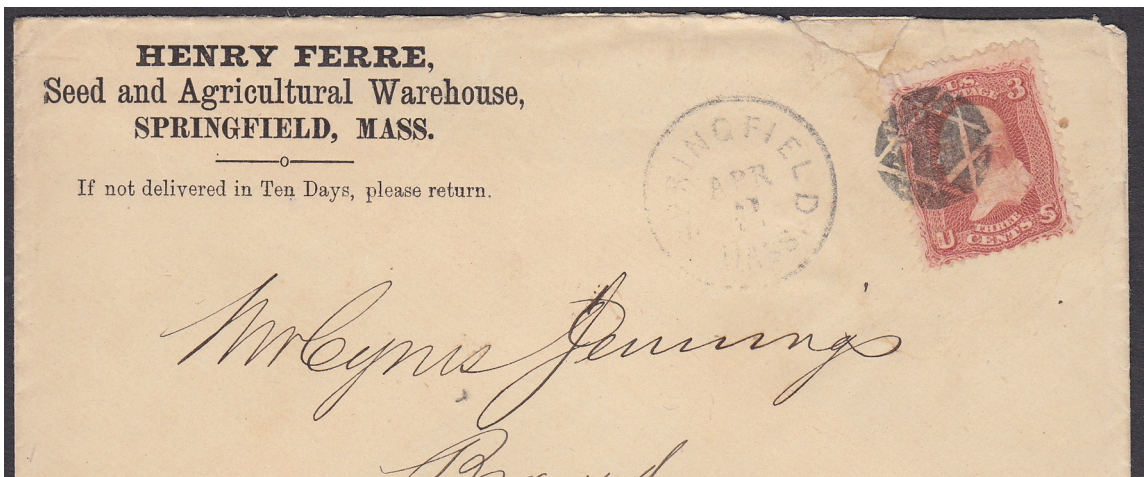 HENRY FERRE,
Seed and Agricultural Warehouse,
SPRINGFIELD, MASS.
If not delivered in Ten Days, please return.
SPRINGFIELD
APR
MASS
U.S. POSTAGE
3
U S
THREE
CENTS
Mr Cyrus Jennings